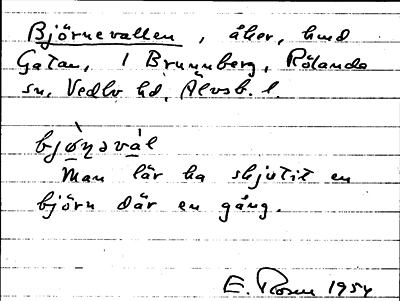 Björnevallen, åker, hmd
Gatan, 1 Brunnberg, Rölanda
sn, Vedbo hd, Älvsb. l.
bjø̀ṇəvál
Man lär ha skjutit en
björn där en gång.
E. 1954